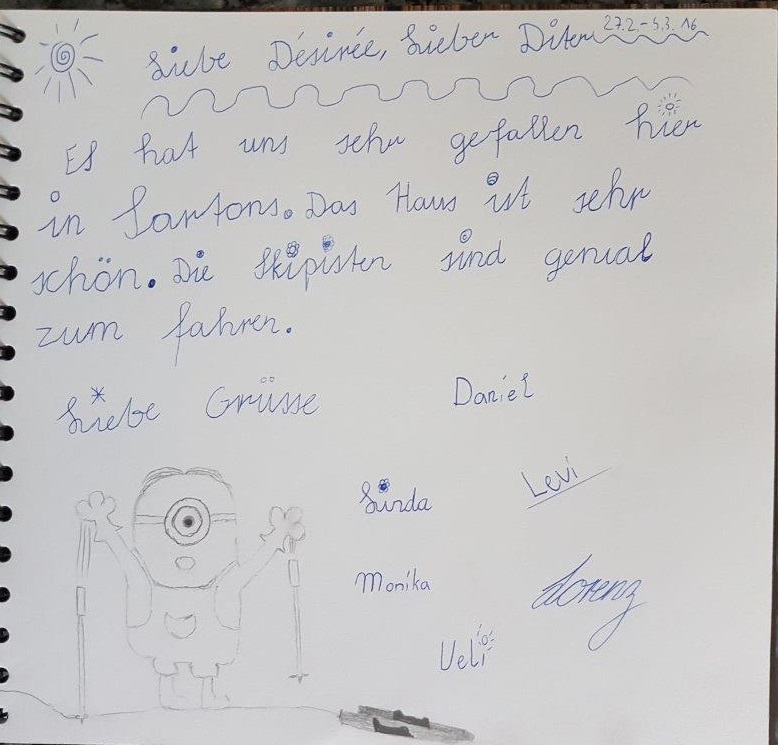 Liebe Désirée, Lieber Diter 27.2. - 5.3. 16
Es hat uns sehr gefallen hier
in Sartons. Das Haus ist sehr
schön. Die Skipisten sind genial
zum fahren.
Liebe Grüsse
Daniel
Linda
Levi
Monika
Lorenz
Ueli